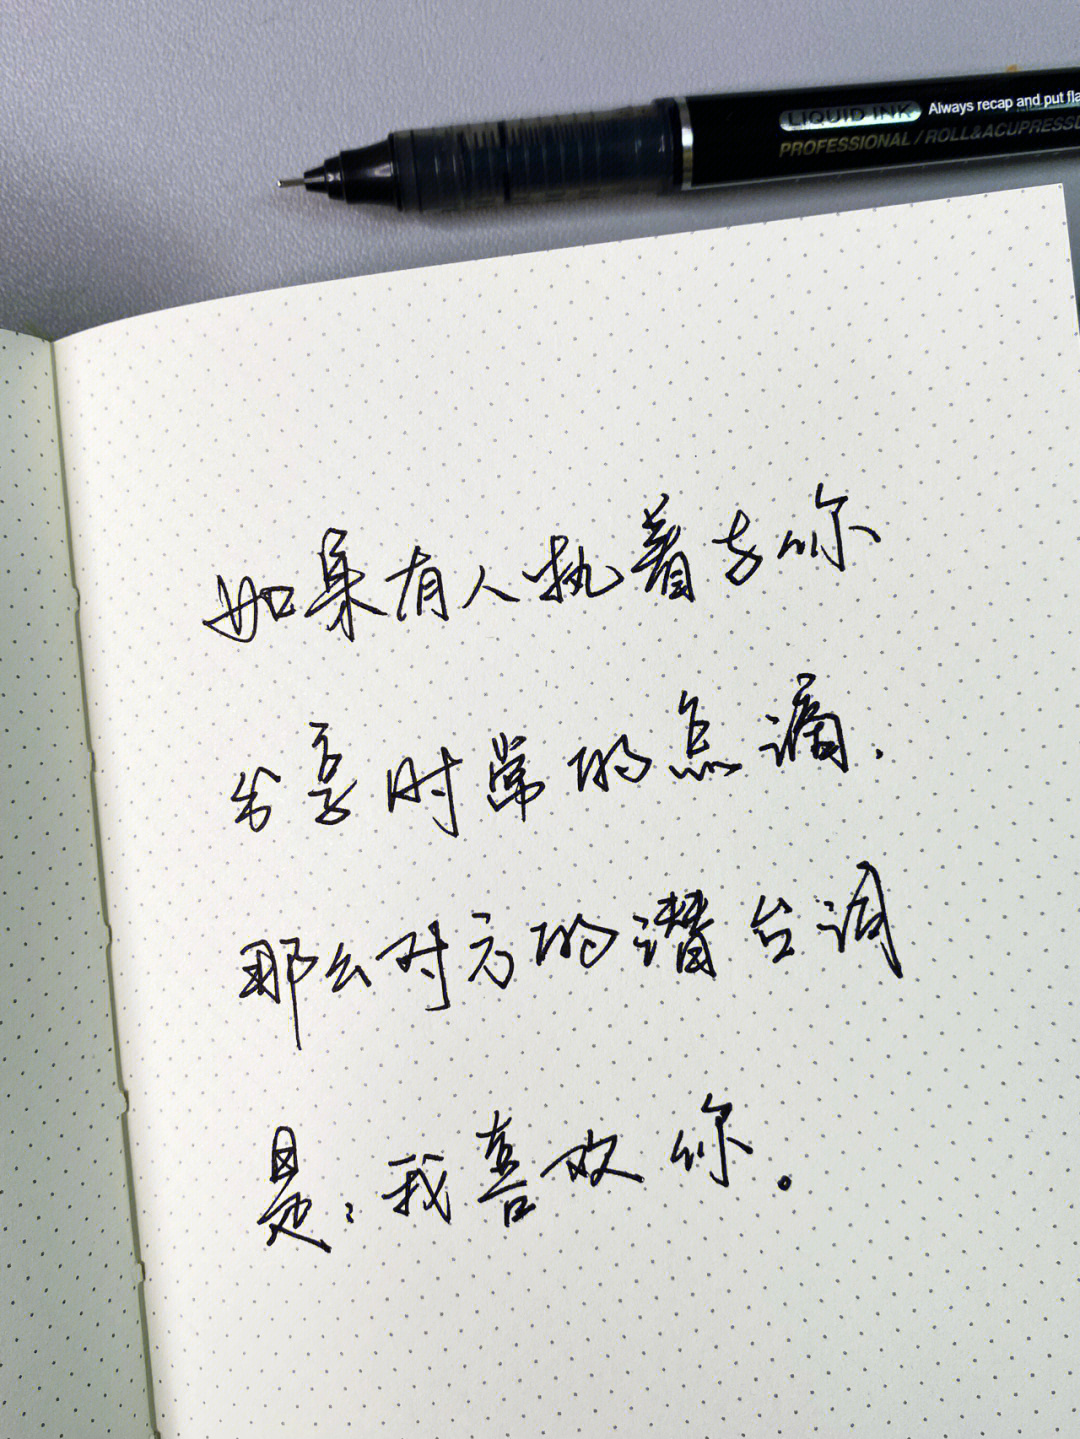 LIQUID INK Always recap and put fla
PROFESSIONAL / ROLL&ACUPRESSU
如果有人执着去你
分享时常的点滴.
那么对方的潜台词
是:我喜欢你。